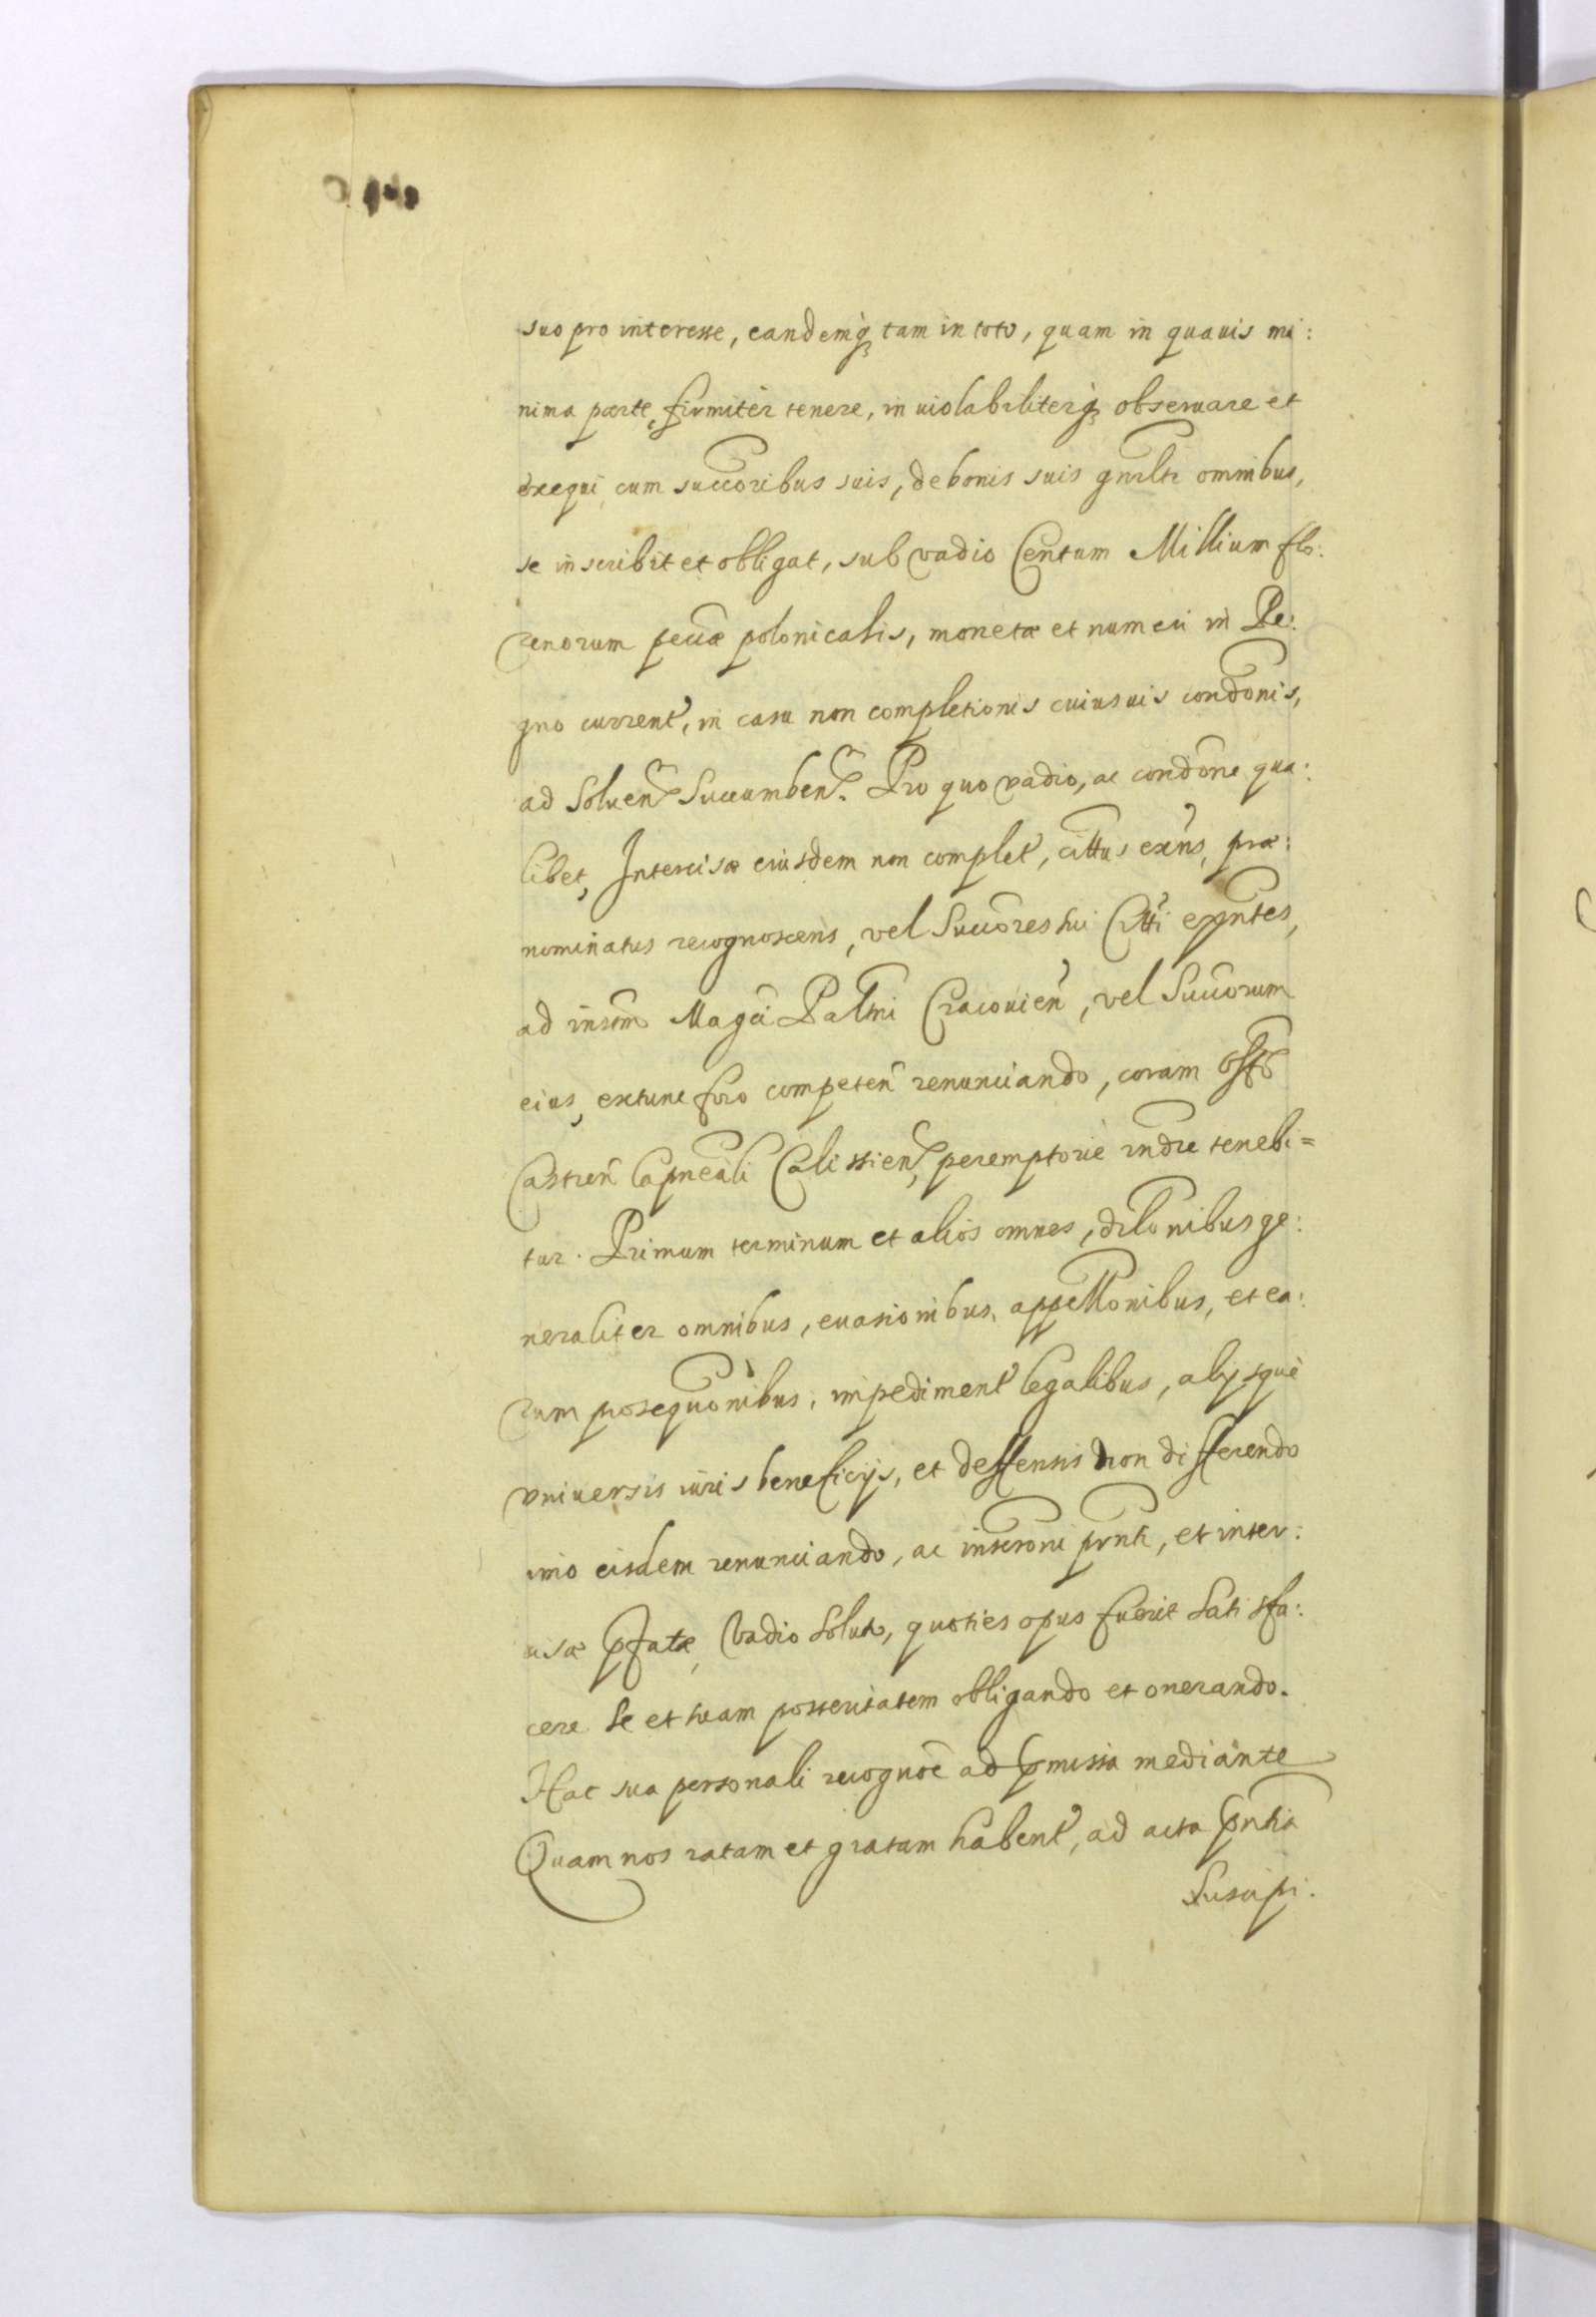 suo pro interesse, eandemq₃ tam in toto, quam in quauis mi:
nima parte, firmitèr tenere, inuiolabiliterq₃ obseruare et
exequi cum succoribus suis, de bonis suis gnrltr omnibus,
se inscribit et obligat, sub vadio Centum Millium flo:
renorum pecuæ polonicalis, monetæ et numeri in Re:
gno current, in casu non completionis cuiusuis condonis,
ad Soluen Succumben. Pro quo vadio, ac condone qua:
libet, Intercisæ eiusdem non complet, cittus exns, præ:
nominatus recognoscens, vel Succores hui Citti expntes,
ad instm Magci Paltni Cracouien, vel Succorum
eius, extunc foro competen renunciando, coram Offo
Castren Capneali Calissien, peremptoriè rndre tenebi=
tur. Primum terminum et alios omnes, dilonibus ge:
neraliter omnibus, euasionibus, appellonibus, et ea:
rum prosequonibus, impediment legalibus, alijsquè
vniuersis iuris beneficijs, et deffensis non differendo
imo eisdem renunciando, ac inscroni prnti, et inter:
cisæ pfatæ, Vadio Soluto, quoties opus fuerit Satisfa:
cere Se et suam posteritatem obligando et onerando.
Hac sua personali recognoe ad pmissa mediante
Quam nos ratam et gratam habent, ad acta pntia
Suscipi: